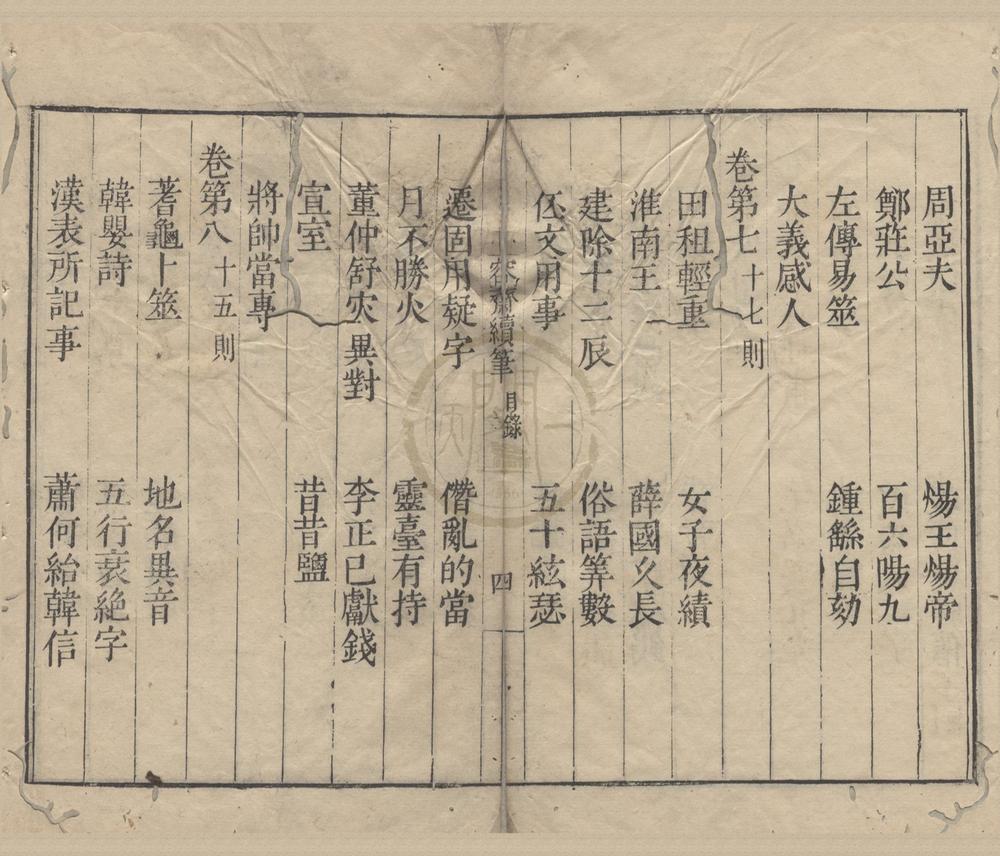 周亞夫 煬王煬帝
鄭莊公 百六陽九
左傳易筮 鍾繇自劾
大義感人
卷第七 十七則
田租輕重 女子夜績
淮南王 薛國久長
建除十二辰 俗語筭數
伾文用事 五十絃瑟
容齋續筆 目錄 四
遷固用疑字 僭亂的當
月不勝火 靈臺有持
董仲舒灾異對 李正已獻錢
宣室 昔昔鹽
將帥當專
卷第八 十五則
蓍龜卜筮 地名異音
韓嬰詩 五行衰絶字
漢表所記事 蕭何紿韓信